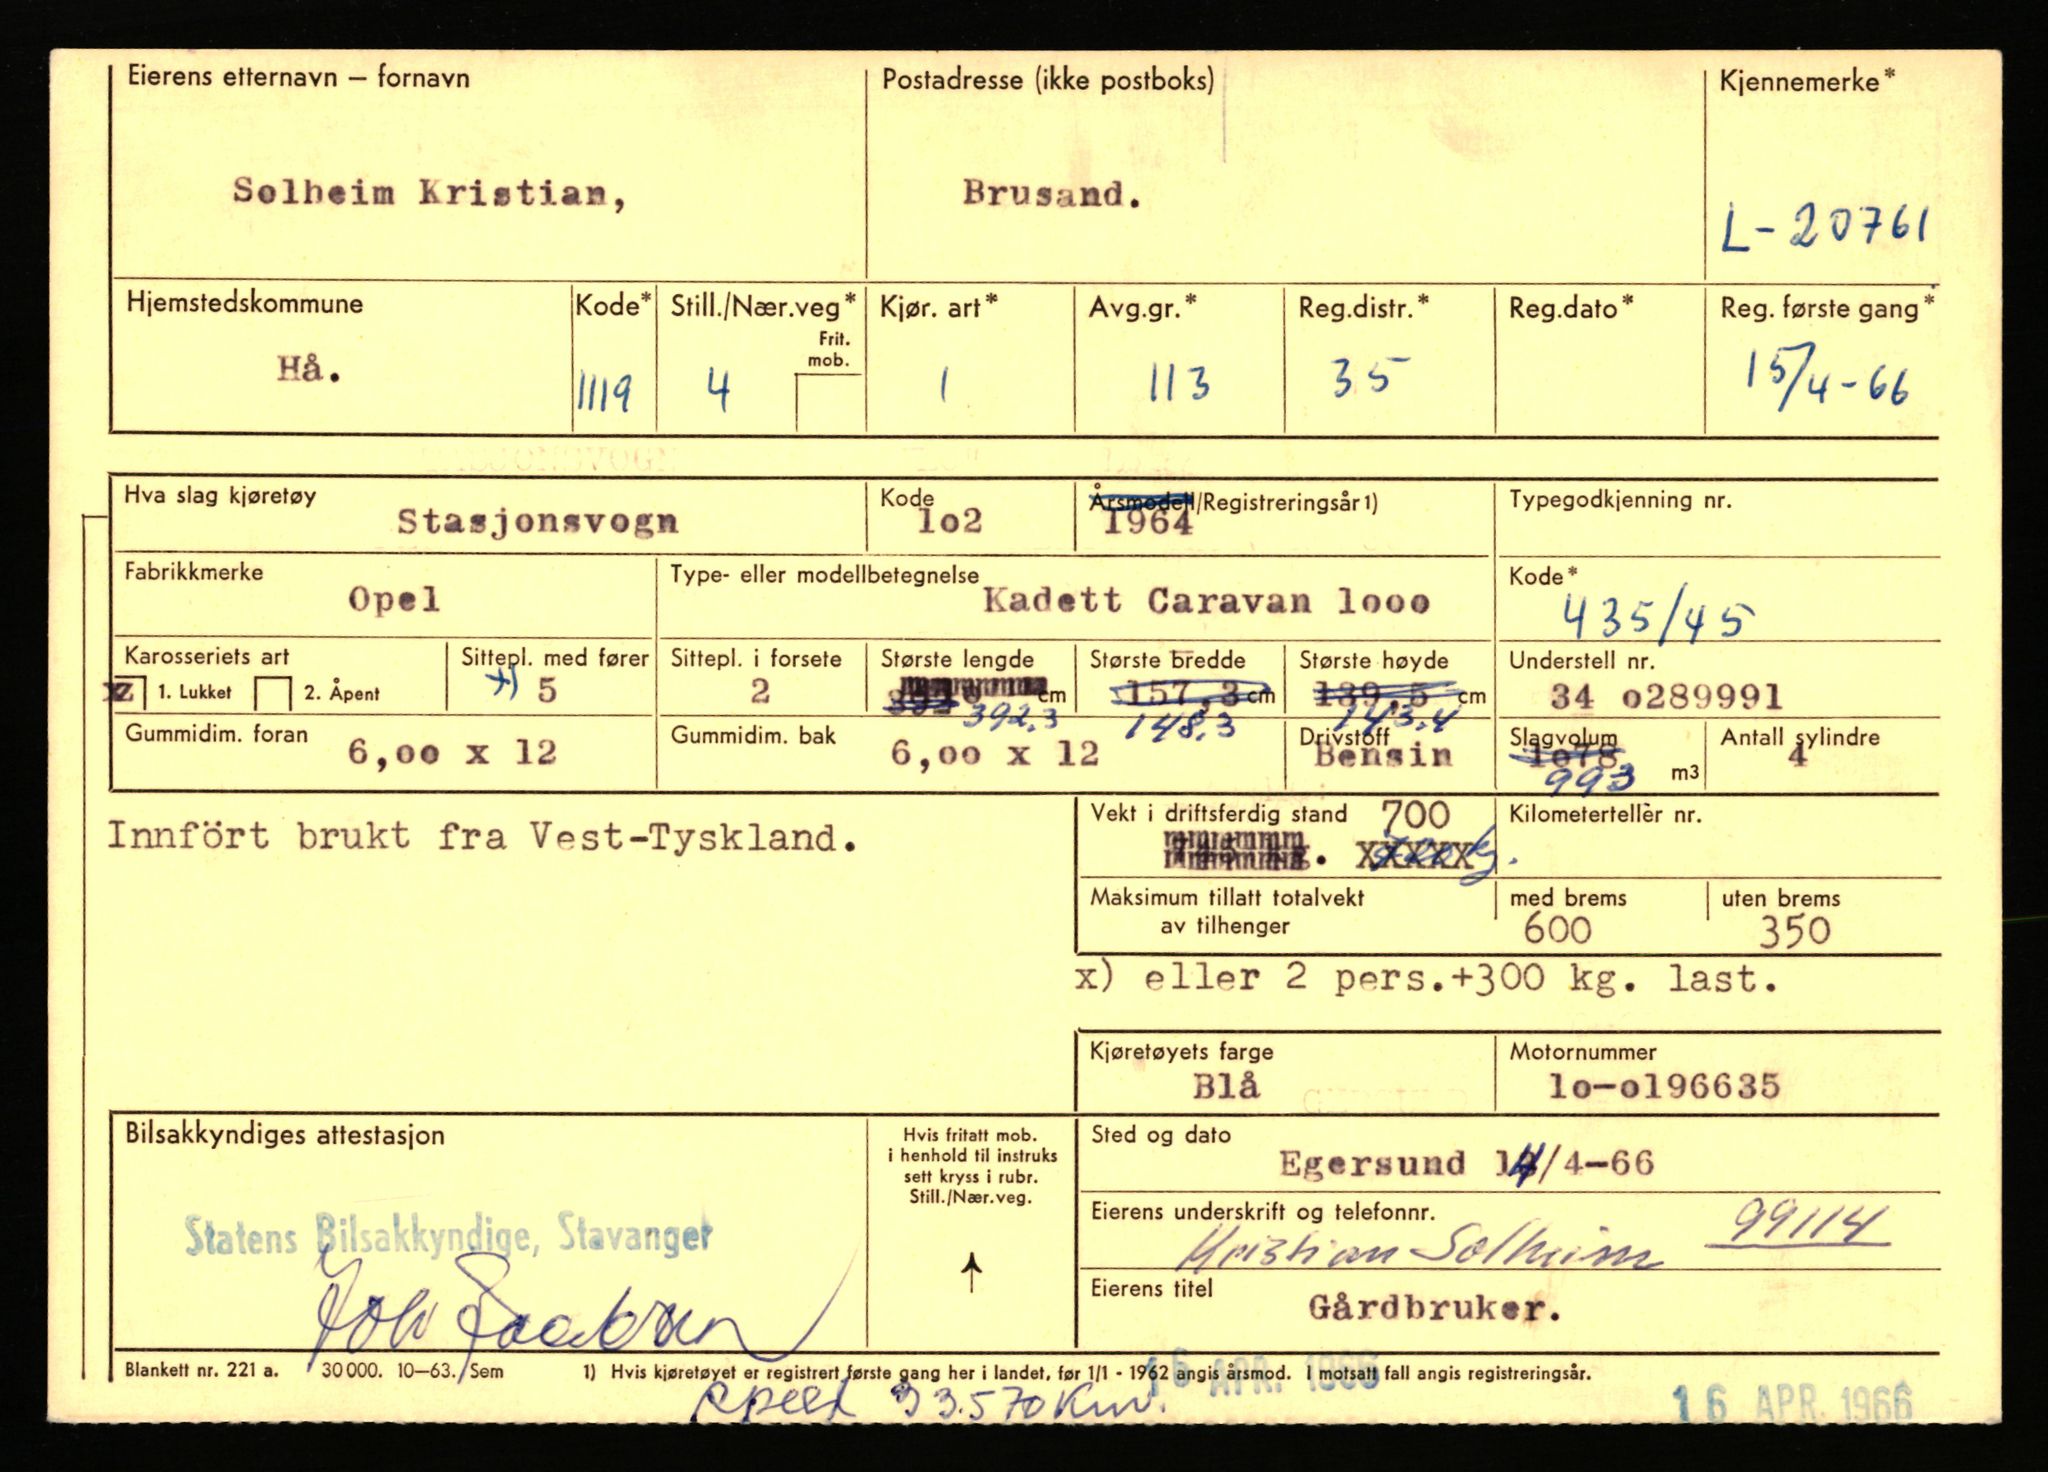 Eierens etternavn – fornavn
Postadresse (ikke postboks)
Kjennemerke*
Solheim Kristian,
Brusand.
L-20761
Hjemstedskommune
Kode*
Still./Nær.veg*
Frit.
mob.
Kjør. art*
Avg.gr.*
Reg.distr.*
Reg.dato*
Reg. første gang*
Hå.
1119
4
1
113
35
15/4-66
Hva slag kjøretøy
Stasjonsvogn
Kode
1o2
Årsmodell/Registreringsår1)
1964
Typegodkjenning nr.
Fabrikkmerke
Opel
Type- eller modellbetegnelse
Kadett Caravan 1ooo
Kode*
435/45
Karosseriets art
1. Lukket
2. Åpent
Sittepl. med fører
x) 5
Sittepl. i forsete
2
Største lengde
cm
392.3
Største bredde
157,3 cm
148.3
Største høyde
139,5 cm
143.4
Understell nr.
34 o289991
Gummidim. foran
6,oo x 12
Gummidim. bak
6,oo x 12
Drivstoff
Bensin
Slagvolum
1o78
993
m3
Antall sylindre
4
Innfört brukt fra Vest-Tyskland.
Vekt i driftsferdig stand 700
Kilometerteller nr.
Maksimum tillatt totalvekt
av tilhenger
med brems
600
uten brems
350
x) eller 2 pers.+300 kg. last.
Kjøretøyets farge
Blå
Motornummer
1o-o196635
Bilsakkyndiges attestasjon
Hvis fritatt mob.
i henhold til instruks
sett kryss i rubr.
Still./Nær.veg.
Sted og dato
Egersund 14/4-66
Eierens underskrift og telefonnr.
Kristian Solheim 99114
Statens Bilsakkyndige, Stavanger
Eierens titel
Gårdbruker.
Blankett nr. 221 a. 30 000. 10–63. Sem
1) Hvis kjøretøyet er registrert første gang her i landet, før 1/1 - 1962 angis årsmod. I motsatt fall angis registreringsår.
16 APR. 1966
33.570 Km.
16 APR. 1966